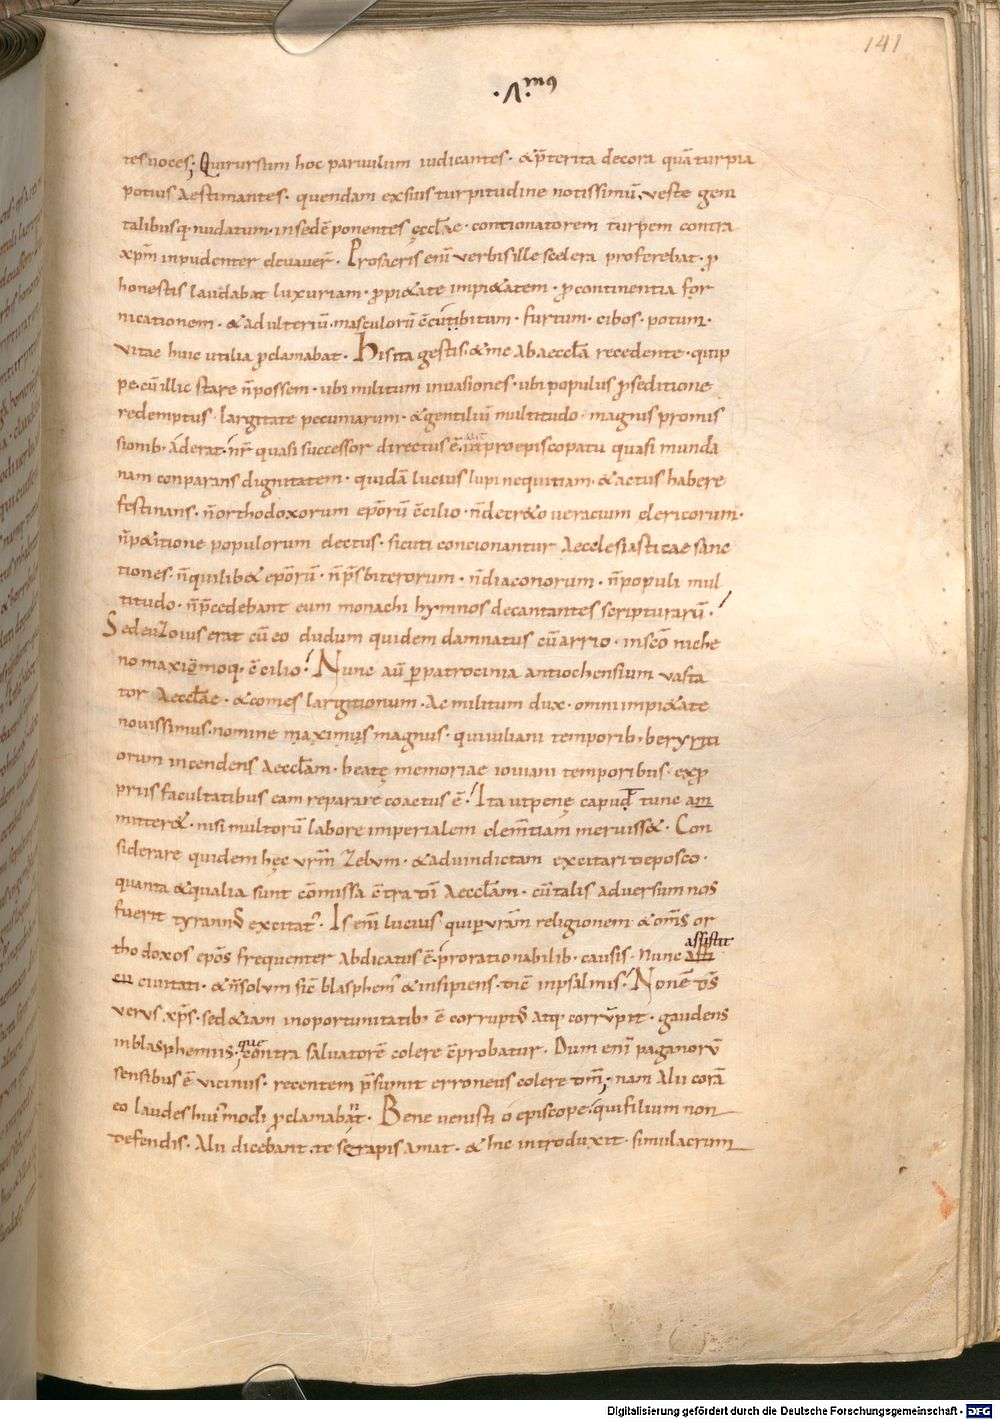 141
.V.imus
tes uoces; Qui rursum hoc paruulum iudicantes · & p̄terita decora quā turpia
potius aestimantes · quendam ex suis turpitudine notissimū, ueste geni
talibusq· nudatum · in sedē ponentes ęcclae · contionatorem turpem contra
xp̄m inpudenter eleuauer̄ · Pro sacris eni uerbis ille scelera proferebat · p
honestis laudabat luxuriam · p pi&ate impi&atem · p continentia for
nicationem · & adulteriū · masculorū c̄cubitum · furtum · cibos · potum ·
uitae huic utilia pclamabat · His ita gestis · & me ab aecclā recedente · quip
pe · cū illic stare n̄ possem · ubi militum inuasiones · ubi populus p seditione
redemptus · largitate pecuniarum · & gentiliū multitudo · magnis promis
sionib· aderat · nr̄ quasi successor directus ē · pro episcopatu quasi munda
nam conparans dignitatem · quidā lucius lupi nequitiam · & actus habere
festinans · n̄ orthodoxorum ep̄orū c̄cilio · n̄ decr&o ueracium clericorum ·
n̄ p&itione populorum electus · sicuti concionantur aecclesiasticae sanc
tiones · n̄ quilib& ep̄orū · n̄ p̄sbiterorum · n̄ diaconorum · n̄ populi mul
titudo · n̄ p̄cedebant eum monachi hymnos decantantes scripturarū ·
Sed euzoius erat cū eo dudum quidem damnatus cū arrio · in scō niche
no maximoq· c̄cilio · Nunc aū p patrocinia antiochensium uasta
tor aecclae · & comes largitionum · ac militum dux · omni impi&ate
nouissimus · nomine maximus magnus · qui iuliani temporib· berytti
orum incendens aecclam · beatę memoriae iouiani temporibus · ex p
priis facultatibus eam reparare coactus ē · Ita ut penę capud tunc am
mitter& · nisi multorū labore imperialem clem̄tiam meruiss& · Con
siderare quidem hęc urm̄ zelum · & ad uindictam excitari deposco ·
quanta & qualia sunt cōmissa c̄tra di aecclam · cū talis aduersum nos
fuerit tyrannus excitat · Is eni lucius qui p uram religionem & oms or
thodoxos epos frequenter abdicatus ē · pro rationabilib· causis · Nunc assistit
eu ciuitati · & n̄ solum sic̄ blasphem & insipiens · dic̄ in psalmis · Non ē ds̄
uerus xps̄ · sed &iam inoportunitatib· ē corruptus atq· corrūpit · gaudens
in blasphemiis · que contra saluatorē colere c̄probatur · Dum eni paganorū
sensibus ē uicinus · recentem p̄sumit erroneus colere dm̄; nam alii corā
eo laudes huimodi pclamabant · Bene uenisti o episcope · qui filium non
defendis · Alii dicebant · te serapis amat · & hic introduxit · simulacrum
Digitalisierung gefördert durch die Deutsche Forschungsgemeinschaft - DFG